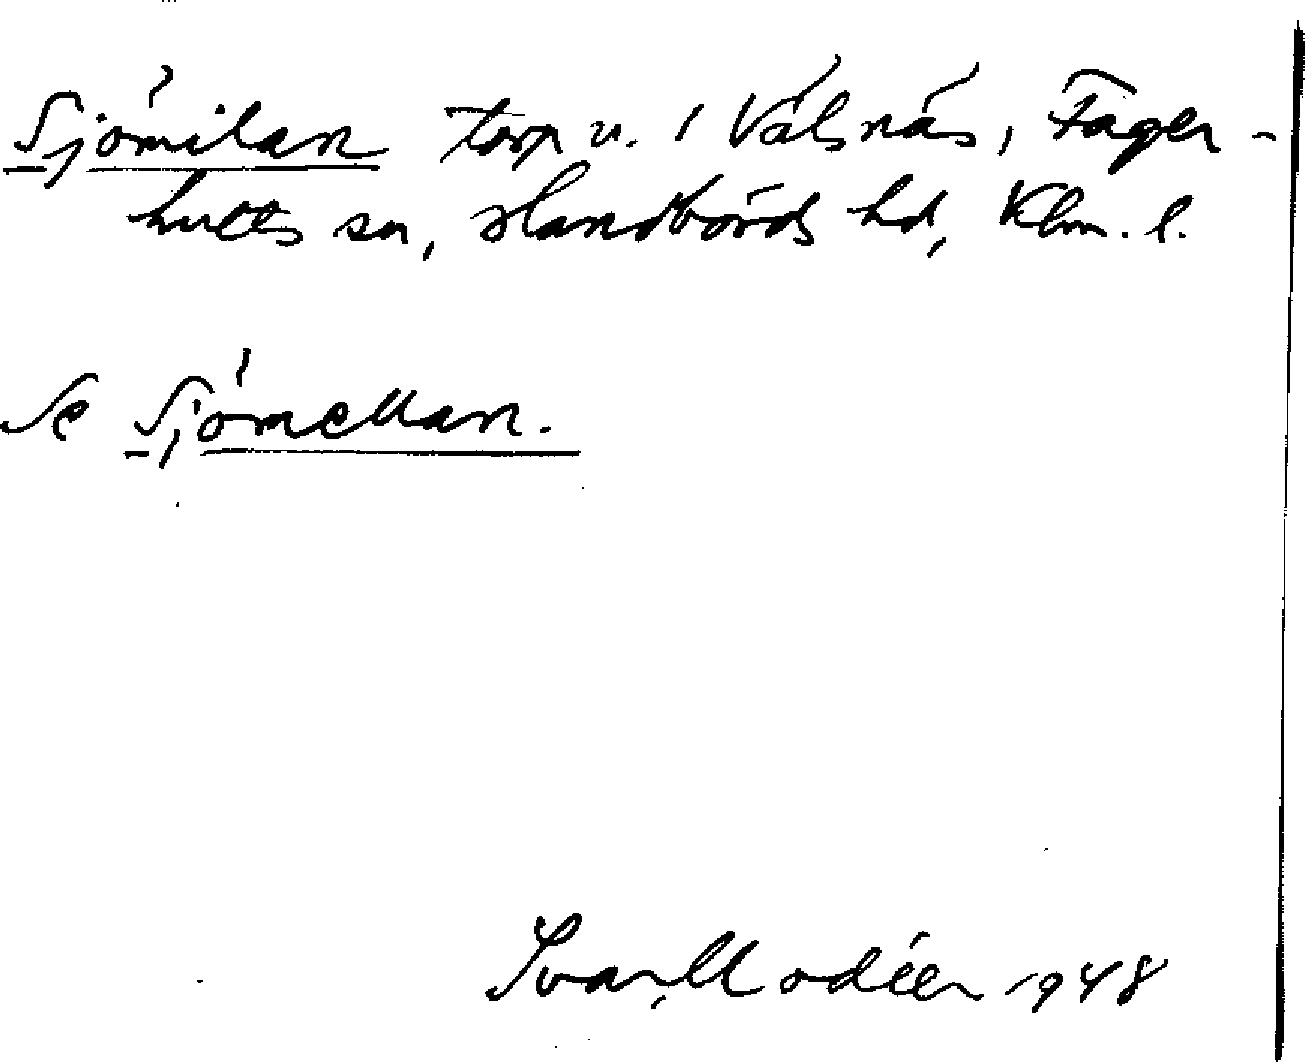 Sjömilan torp u. 1 Välnäs, Fager-
hults sn, Handbörds hd, Klm. l.
Se Sjömellan.
Ivar Modéer 1948